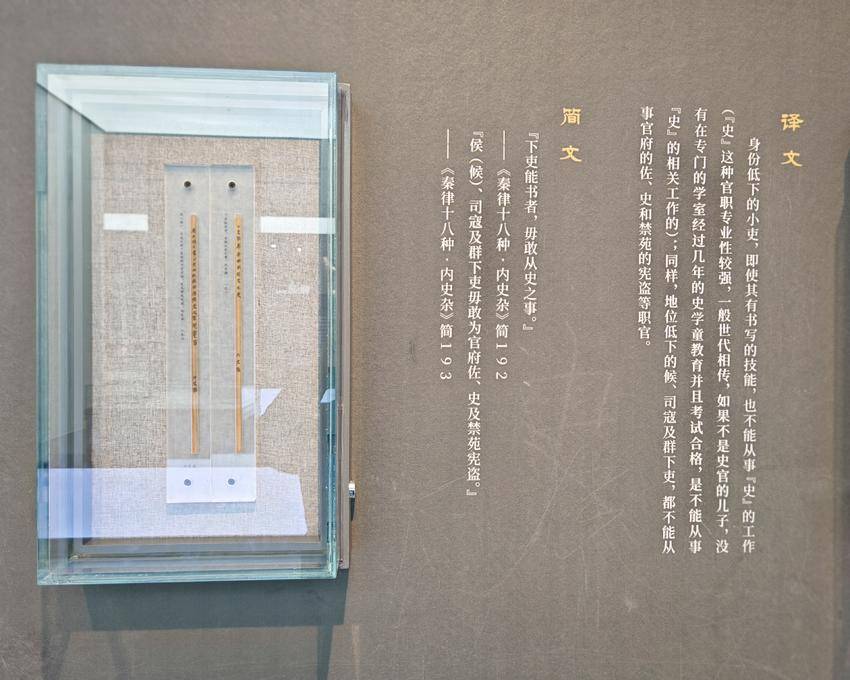 译文
身份低下的小吏，即使其有书写的技能，也不能从事『史』的工作
（『史』这种官职专业性较强，一般世代相传，如果不是史官的儿子，没
有在专门的学室经过几年的史学童教育并且考试合格，是不能从事
『史』的相关工作的）；同样，地位低下的候、司寇及群下吏，都不能从
事官府的佐、史和禁苑的宪盗等职官。
简文
『下吏能书者，毋敢从史之事。』
——《秦律十八种·内史杂》简192
『侯（候）、司寇及群下吏毋敢为官府佐、史及禁苑宪盗。』
——《秦律十八种·内史杂》简193